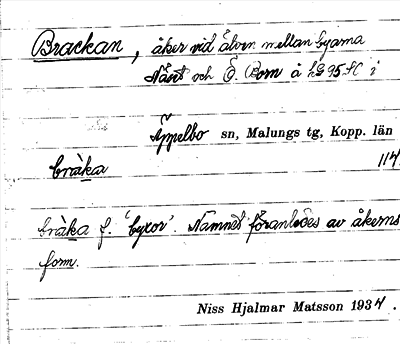 Brackan, åker vid älven mellan byarna
Nåset och Ö. Born å hS 95 SO i
Äppelbo sn, Malungs tg, Kopp. län
bràka 114
bràka f. 'byxor'. Namnet föranledes av åkerns
form.
Niss Hjalmar Matsson 1934.